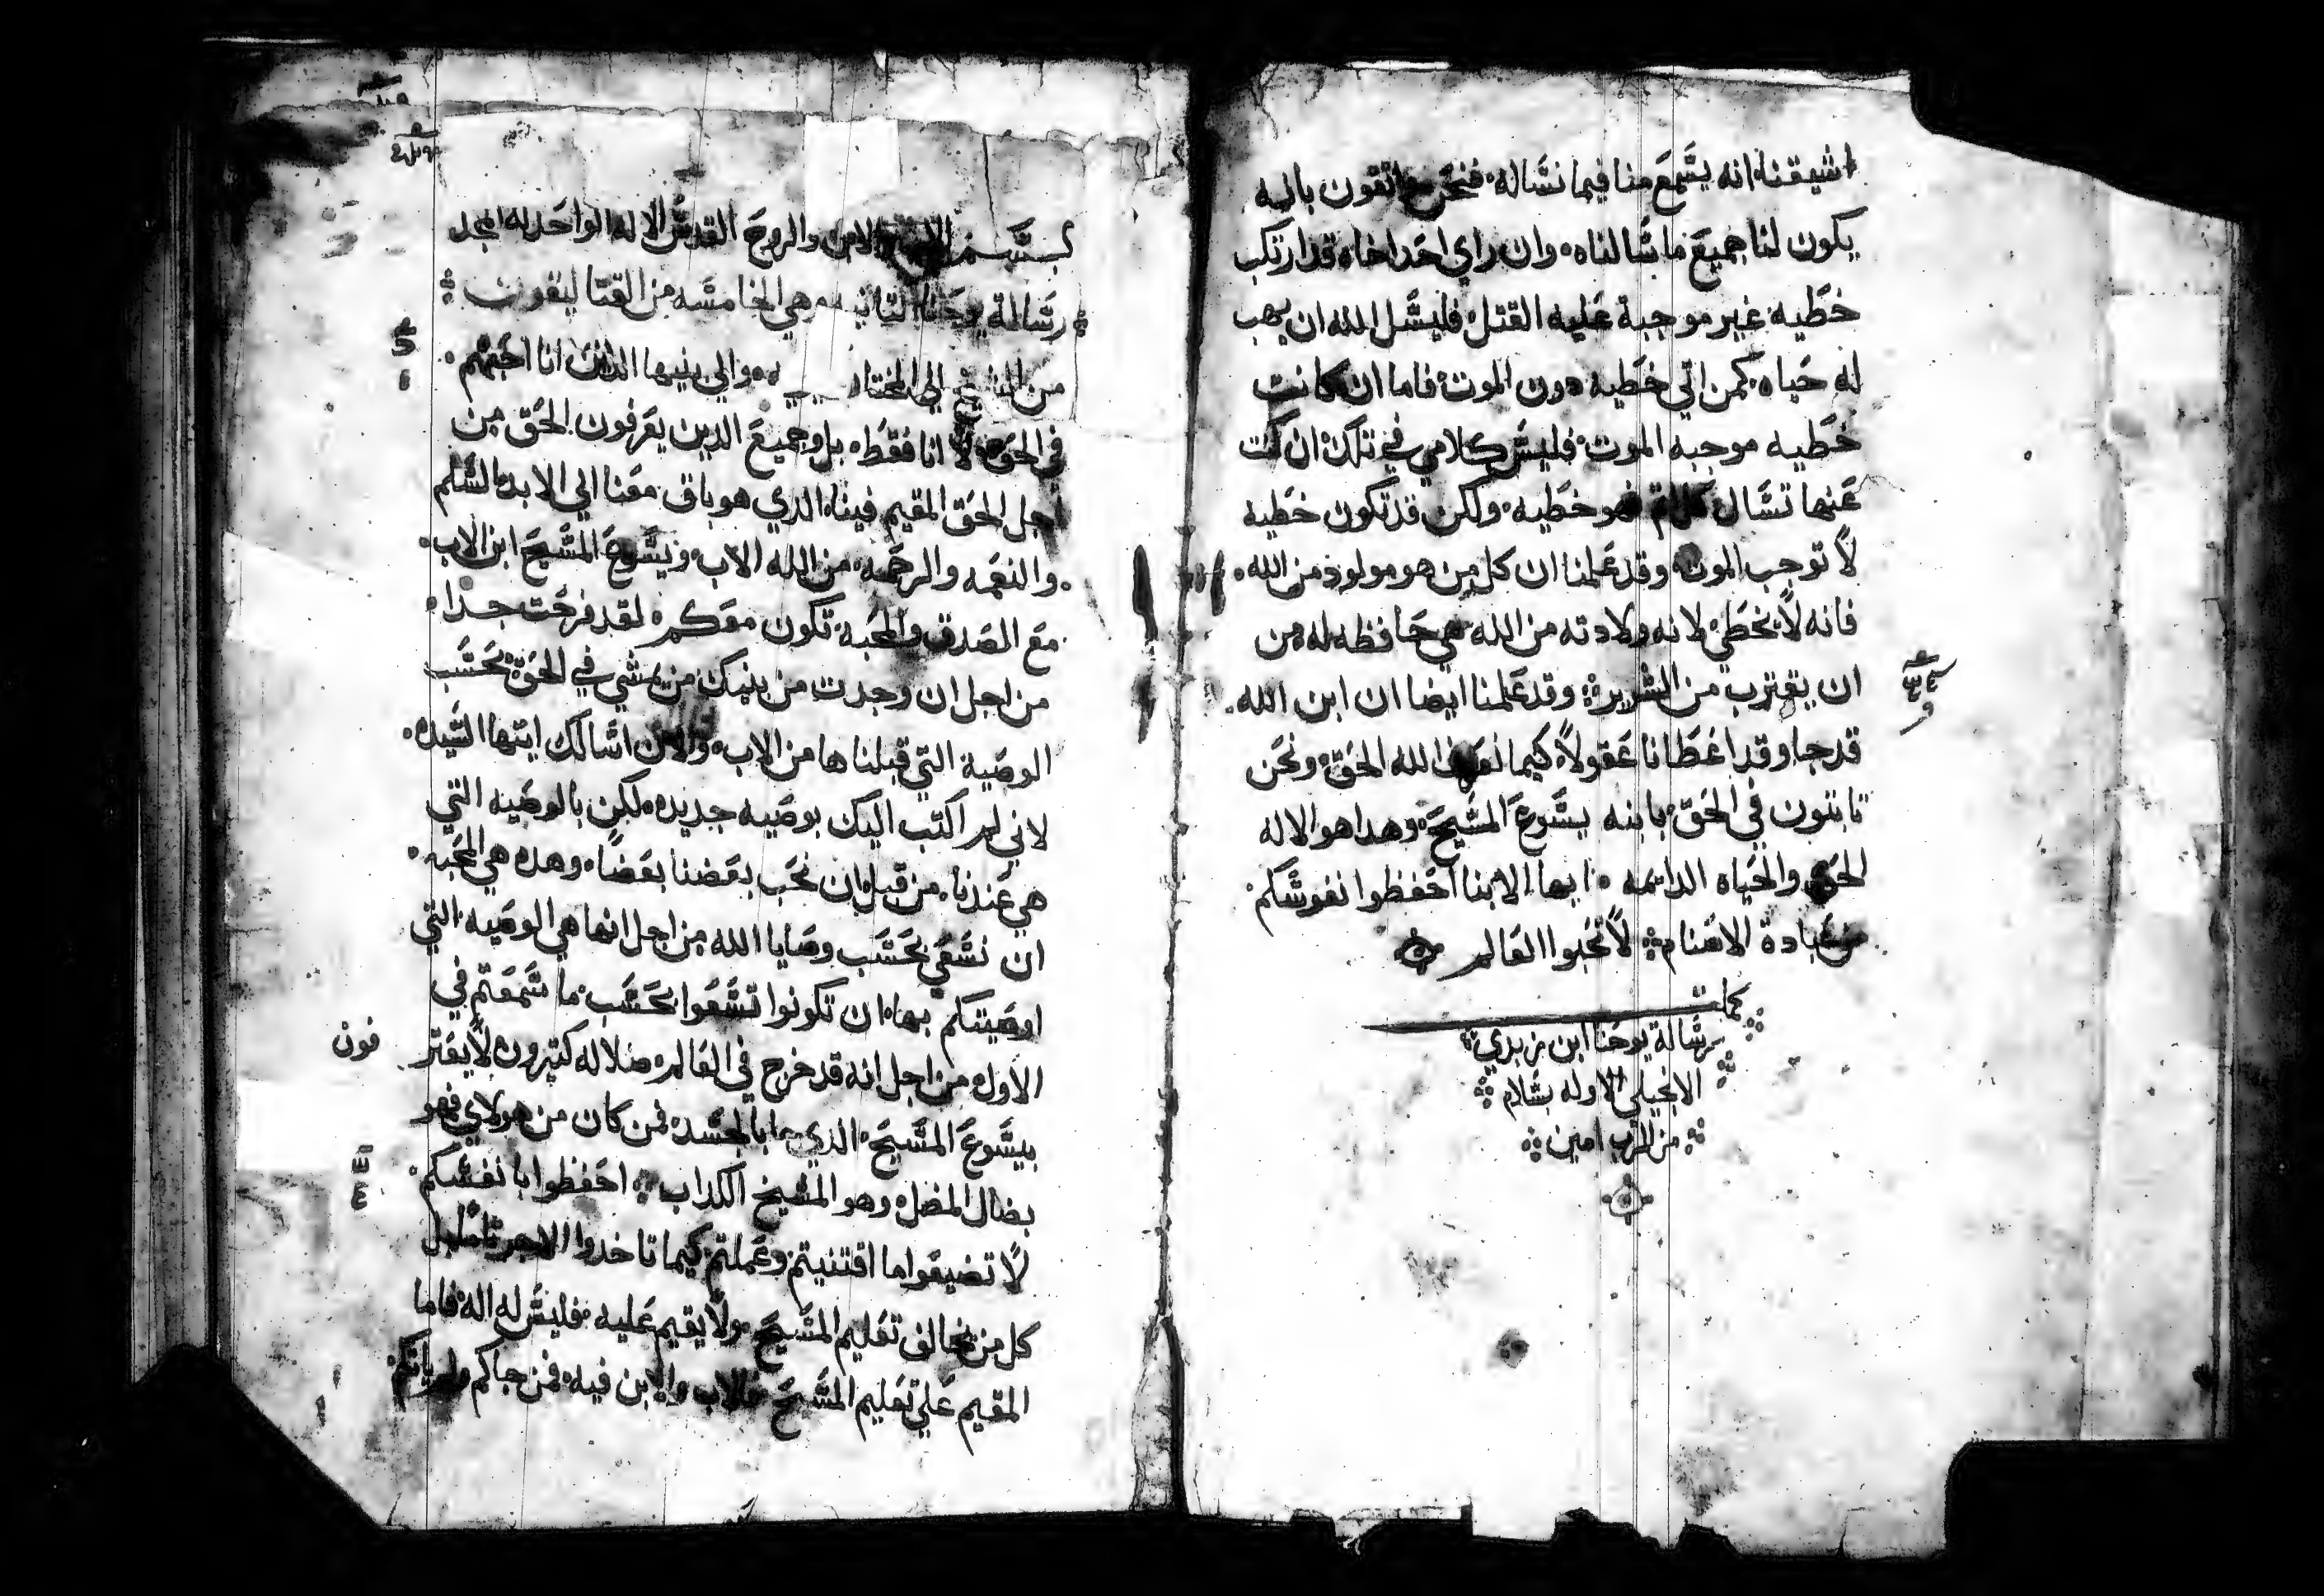 اشيقنا انه يسمع منا فيما نساله فنحن واتقون بانه
يكون لنا جميع ما سالناه وان راي احد اخاه قد ارتكب
خطيه غير موجبة عليه القتل فليسل الله ان يهب
له حياه كمن اتي خطيه دون الموت فاما ان كانت
خطيه موجبه الموت فليس كلامي في تلك ان كنت
عنها تسال فهو خطيه ولكن قد تكون خطيه
لا توجب الموت وقد علمنا ان كل من هو مولود من الله
فانه لا يخطي لانه ولادته من الله هي حافظه له من
ان يقترب من الشرير وقد علمنا ايضا ان ابن الله
قد جا وقد اعطانا عقولا كيما نعرف الله الحق ونحن
تابتون في الحق بابنه يسوع المسيح وهدا هو الاله
الحق والحياه الدايمه ايها الابنا احفظوا نفوسكم
من عبادة الاصنام لا تحبوا العالم
كملت
رسالة يوحنا ابن زبدي
الانجيلي الاوله بسلام
من الرب امين
بسم الاب والابن والروح القدس الاله الواحد له المجد
رسالة يوحنا التانيه وهي الخامسه من القتاليقون
من الشيخ الي المختاره والي بنيها الدين انا احبهم
في الحق لا انا فقط بل وجميع الدين يعرفون الحق من
اجل الحق المقيم فينا الدي هو باق معنا الي الابد السلم
والنعمه والرحمه من الله الاب ويسوع المسيح ابن الاب
مع الصدق والمحبة تكون معكم لقد فرحت جدا
من اجل ان وجدت من بنيك من يمشي في الحق بحسب
الوصية التي قبلناها من الاب والان اسالك ايتها السيده
لاني لم اكتب اليك بوصيه جديده لكن بالوصيه التي
هي عندنا من قبل ان نحب بعضنا بعضا وهده هي المحبه
ان نسعي بحسب وصايا الله من اجل انها هي الوصيه التي
اوصيتكم بها ان تكونوا تسعوا بحسب ما سمعتم في
الاول من اجل انه قد خرج في العالم ضلاله كتيرون لا يعتر
فون
بيسوع المسيح الدي جا بالجسد فمن كان من هولاي فهو
بضال المضل وهو المسيخ الكداب احفظوا بانفسكم
لا تضيعوا ما اقتنيتم وعملتم كيما تاخدوا الاجر تاما بل
كل من يخالف تعليم المسيح ولا يقيم عليه فليس له اله فاما
المقيم علي تعليم المسيح فالاب والابن فيه فمن جاكم ولم ياتكم